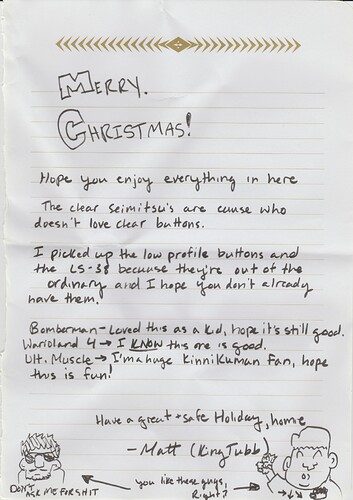 MERRY.
CHRISTMAS!
Hope you enjoy everything in here
The clear Seimitsu's are cause who
doesn't love clear buttons.
I picked up the low profile buttons and
the LS-38 because they're out of the
ordinary and I hope you don't already
have them.
Bomberman - Loved this as a kid, hope it's still good.
Warioland 4 → I KNOW this one is good.
Ult. Muscle → I'm a huge Kinnikuman fan, hope
this is fun!
Have a great + safe Holiday, homie
- Matt (KingTubb)
DON'T
ASK ME FOR SHIT
you like these guys,
Right?